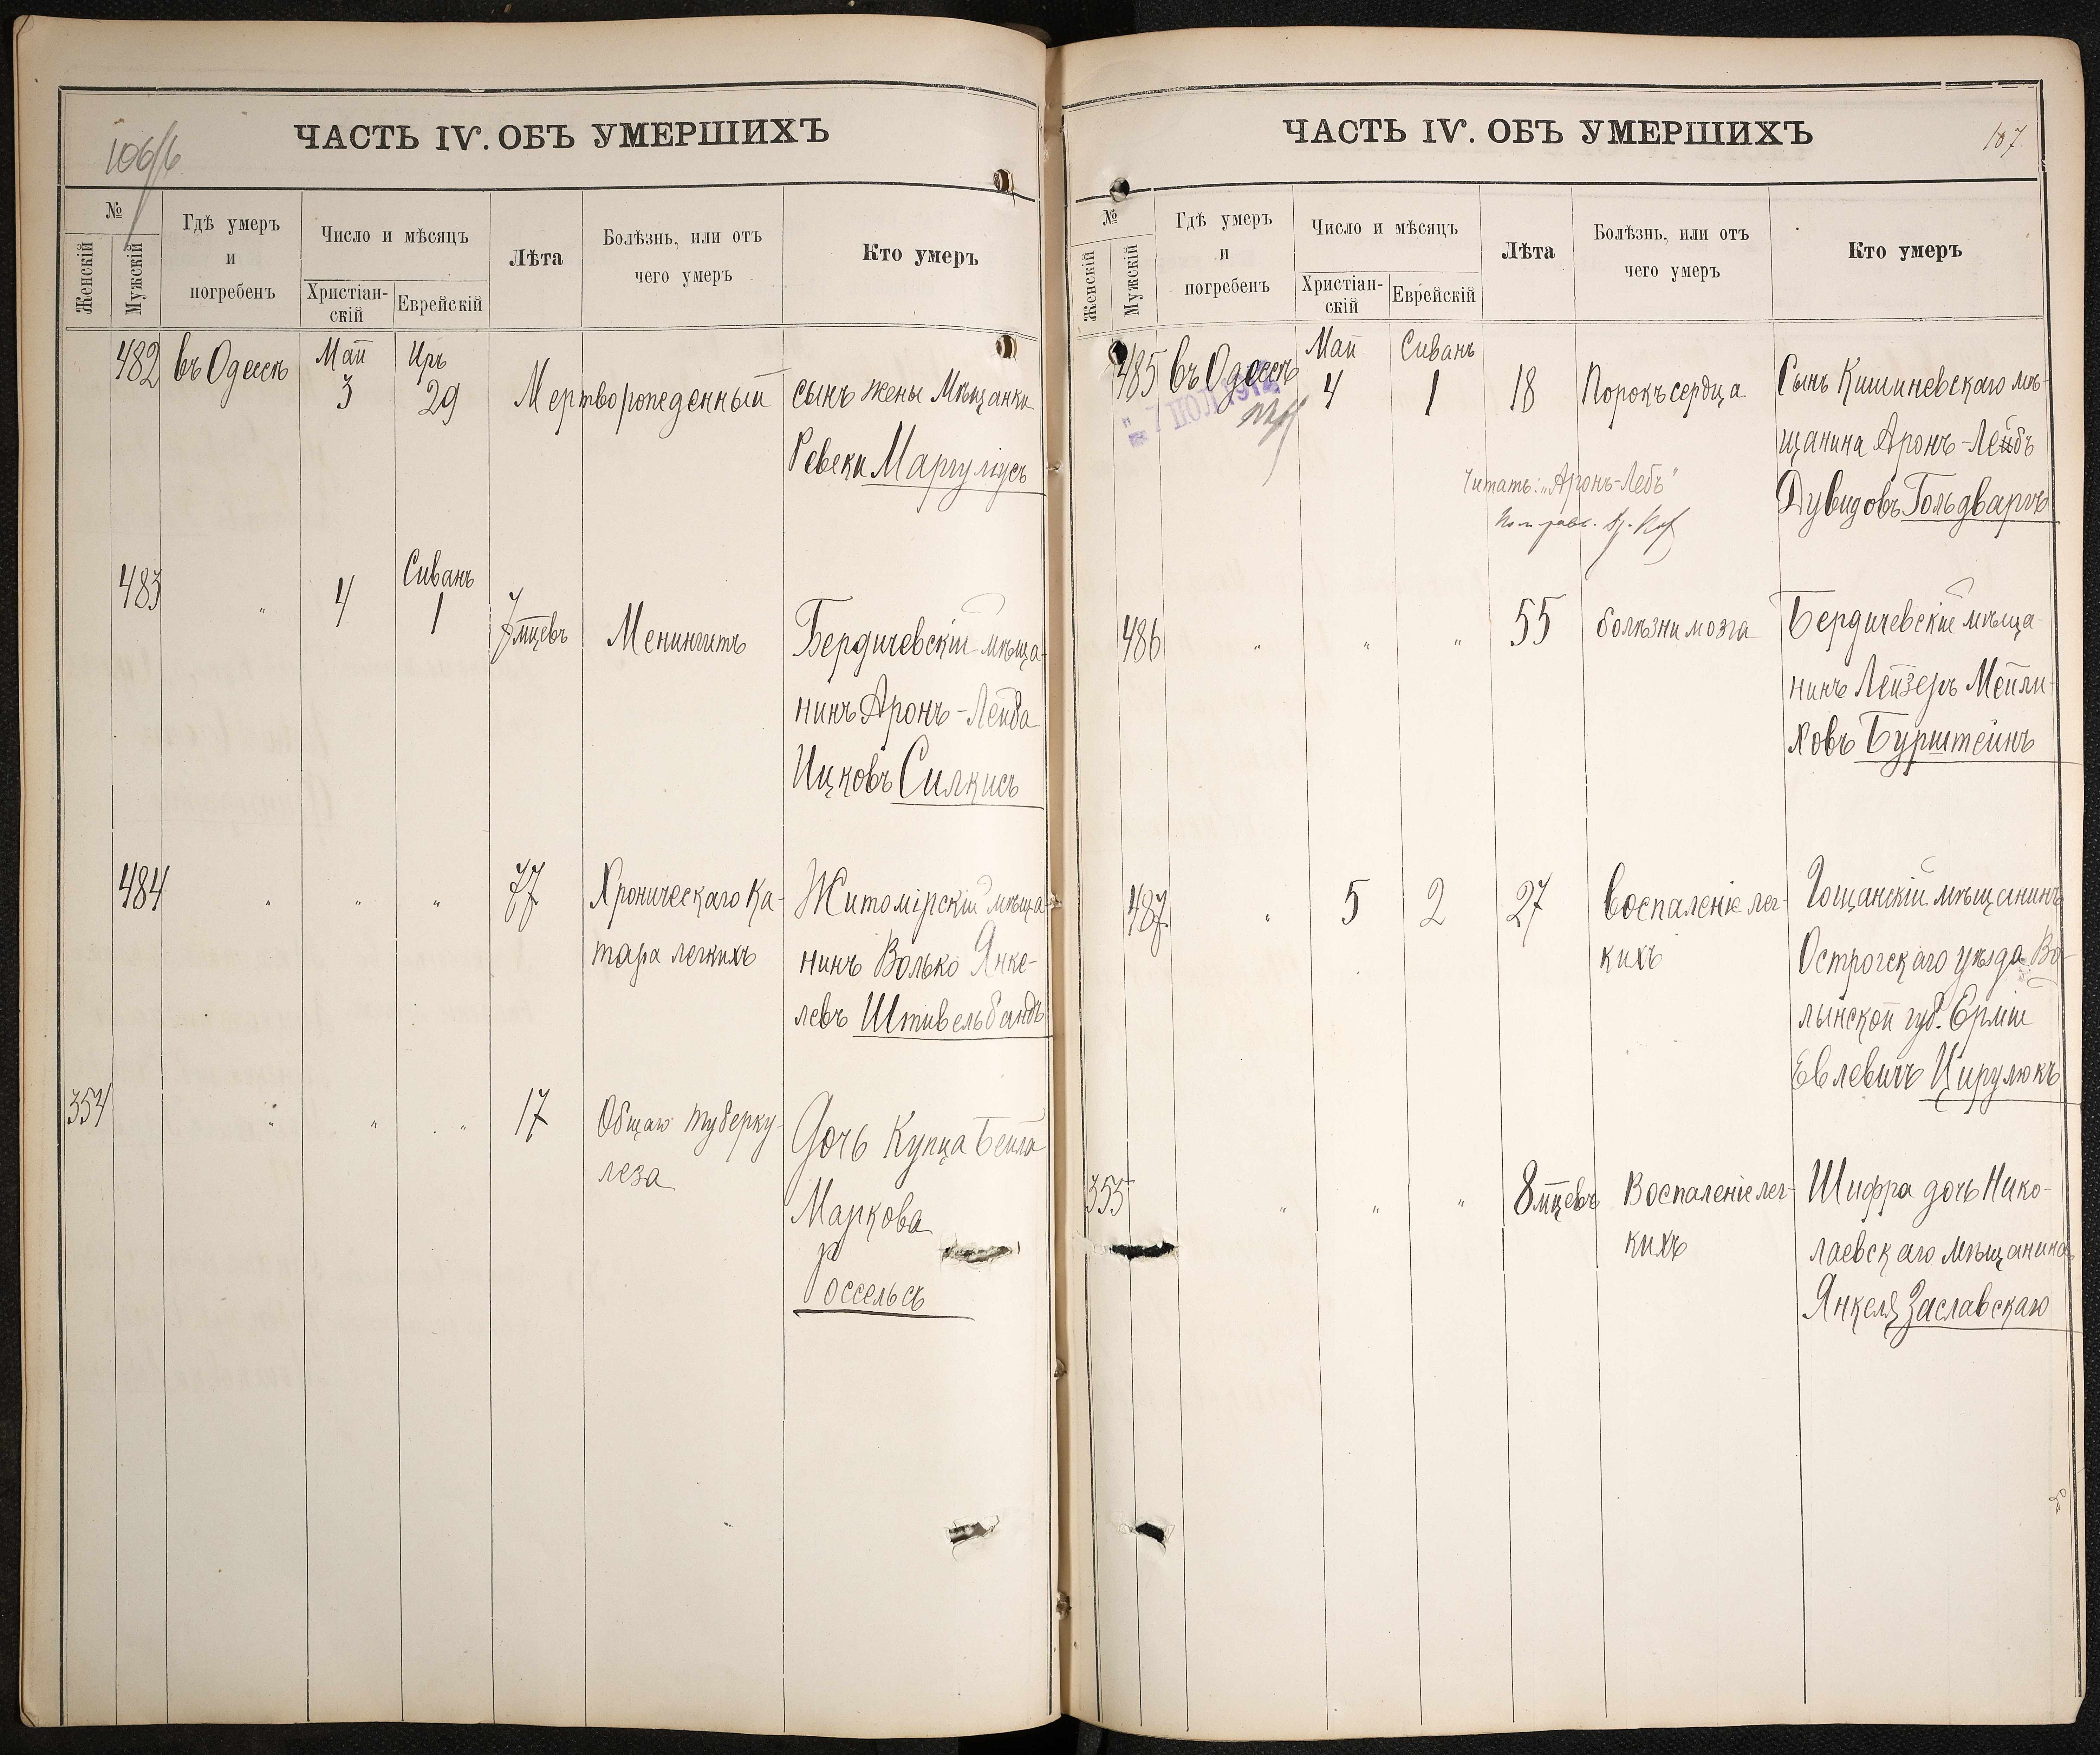 106/б
ЧАСТЬ IV. ОБЪ УМЕРШИХЪ
№
Женскій
Мужскій
Гдѣ умеръ
и
погребенъ
Число и мѣсяцъ
Христіан-
скій
Еврейскій
Лѣта
Болѣзнь, или отъ
чего умеръ
Кто умеръ
482 въ Одессѣ Май Иръ
3 29 Мертворожденный сынъ жены Мѣщанки
Ревеки Маргулисъ
483 " 4 Сиванъ
1 7 мцевъ Менингитъ Бердичевскій мѣща-
нинъ Аронъ-Лейба
Ицковъ Силкисъ
484 " " " 77 Хроническаго Ка- Житомірскій мѣща-
тара легкихъ нинъ Волько Янке-
левъ Штивельбандъ
354 " " " 17 Общаго туберку- Дочь Купца Бейла
леза Маркова
Россельсъ
107.
ЧАСТЬ IV. ОБЪ УМЕРШИХЪ
№
Женскій
Мужскій
Гдѣ умеръ
и
погребенъ
Число и мѣсяцъ
Христіан-
скій
Еврейскій
Лѣта
Болѣзнь, или отъ
чего умеръ
Кто умеръ
485 въ Одессѣ Май Сиванъ
4 1 18 Порокъ сердца Сынъ Кишиневскаго мѣ-
щанина Аронъ-Лейбъ
Дувидовъ Гольдваргъ
7 ІЮЛ 1912
Читать: "Аронъ-Лебъ"
486 " " " 55 болѣзни мозга Бердичевскій мѣща-
нинъ Лейзеръ Мейли-
ховъ Бурштейнъ
487 " 5 2 27 Воспаленіе лег- Гощанскій мѣщанинъ
кихъ Острогскаго уѣзда Во-
лынской губ. Ермій
Евлевичъ Цирулюкъ
355 " " " 8 мцевъ Воспаленіе лег- Шифра дочь Нико-
кихъ лаевскаго мѣщанина
Янкеля Заславскаго